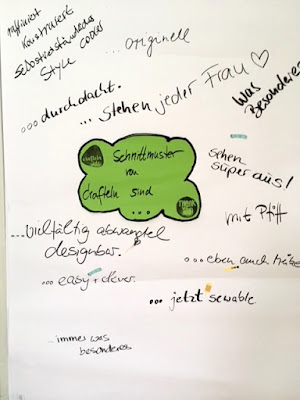 raffiniert
Konstruiert
Selbstverständliches
Style Codes
... originell
... durchdacht.
... stehen jeder Frau ♡
Was
Besonderes
Schnittmuster
von
Crafteln sind
...
sehen
super aus!
mit Pfiff
... vielfältig abwandel
designbar.
... eben auch
... easy + clever.
... jetzt sewable
... immer was
besonderes